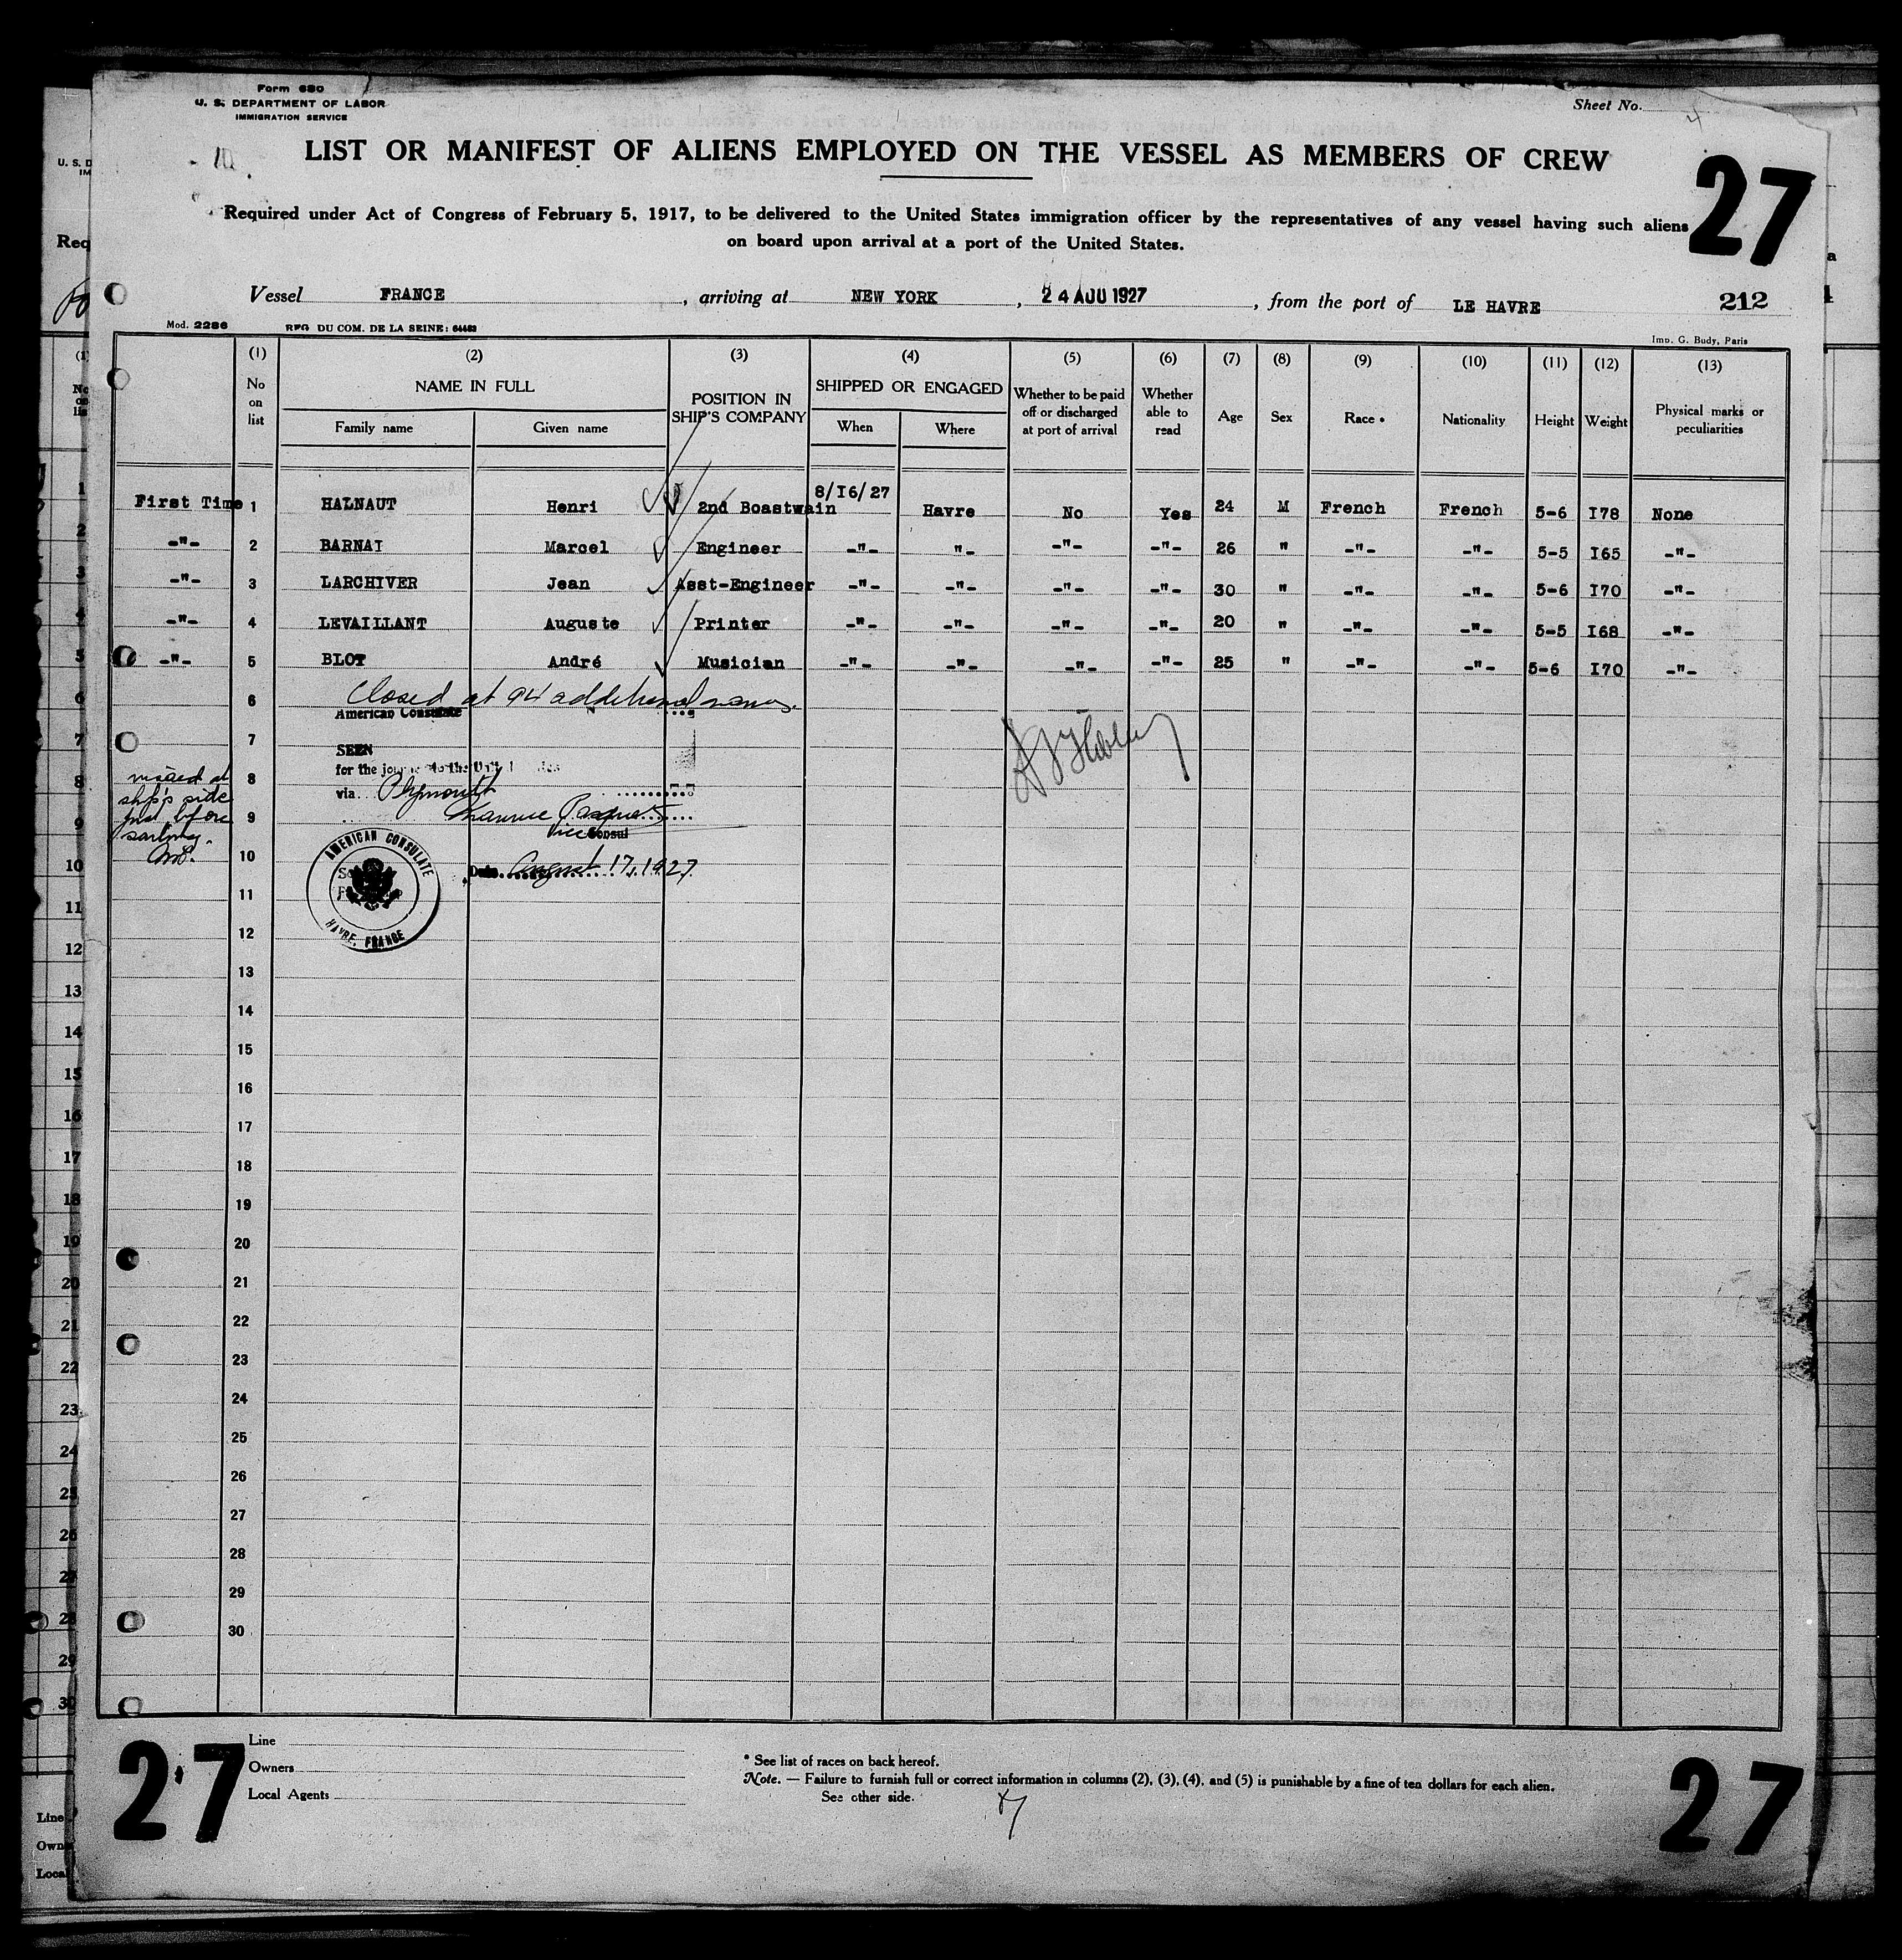 Form 680
U. S. DEPARTMENT OF LABOR
IMMIGRATION SERVICE
Sheet No. 4
LIST OR MANIFEST OF ALIENS EMPLOYED ON THE VESSEL AS MEMBERS OF CREW
27
Required under Act of Congress of February 5, 1917, to be delivered to the United States immigration officer by the representatives of any vessel having such aliens
on board upon arrival at a port of the United States.
Vessel FRANCE, arriving at NEW YORK, 24 AOU 1927, from the port of LE HAVRE 212
Mod. 2286 REG DU COM. DE LA SEINE: 64483 Imp. G. Budy, Paris
(1) (2) (3) (4) (5) (6) (7) (8) (9) (10) (11) (12) (13)
No on list NAME IN FULL Family name Given name POSITION IN SHIP'S COMPANY SHIPPED OR ENGAGED When Where Whether to be paid off or discharged at port of arrival Whether able to read Age Sex Race * Nationality Height Weight Physical marks or peculiarities
First Time 1 HALNAUT Henri 2nd Boastwain 8/16/27 Havre No Yes 24 M French French 5-6 I78 None
-"- 2 BARNAI Marcel Engineer -"- "- -"- -"- 26 " -"- -"- 5-5 I65 -"-
-"- 3 LARCHIVER Jean Asst-Engineer -"- -"- -"- -"- 30 " -"- -"- 5-6 I70 -"-
-"- 4 LEVAILLANT Auguste Printer -"- -"- -"- -"- 20 " -"- -"- 5-5 I68 -"-
-"- 5 BLOT André Musician -"- -"- -"- -"- 25 " -"- -"- 5-6 I70 -"-
6 Closed at additional names.
American Consulate
7
SEEN
for the journey to the United States
visaed at
8
via Plymouth
ship's side
just before
9
sailing.
Vice Consul
10
Date August 17, 1927
AMERICAN CONSULATE
HAVRE, FRANCE
11
12
13
14
15
16
17
18
19
20
21
22
23
24
25
26
27
28
29
30
27
Line
Owners
Local Agents
* See list of races on back hereof.
Note. — Failure to furnish full or correct information in columns (2), (3), (4), and (5) is punishable by a fine of ten dollars for each alien.
See other side.
27